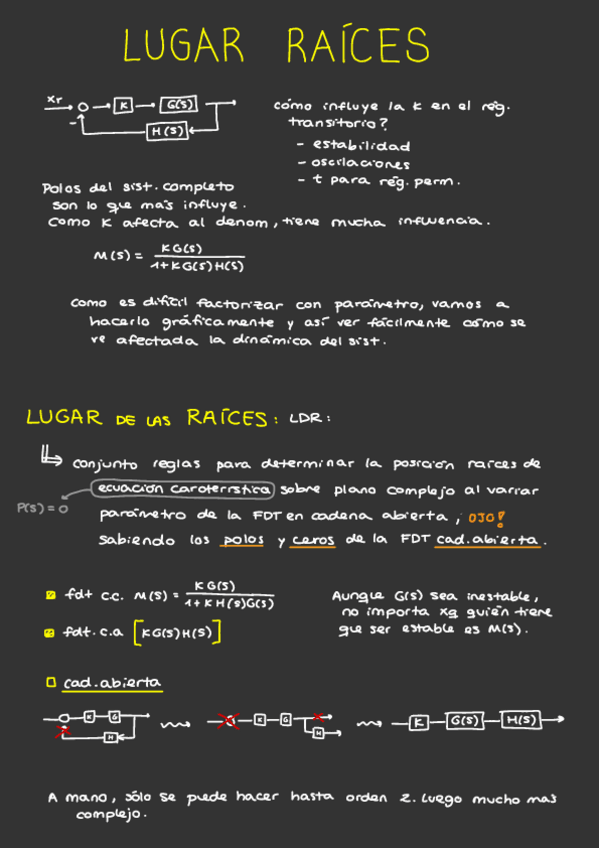 LUGAR RAÍCES
Xr
K
G(S)
H(S)
-
cómo influye la K en el rég.
transitorio?
- estabilidad
- oscilaciones
- t para rég. perm.
Polos del sist. completo
son lo que más influye.
Como K afecta al denom, tiene mucha influencia.
M(S) = KG(S) / 1+KG(S)H(S)
Como es difícil factorizar con parámetro, vamos a
hacerlo gráficamente y así ver fácilmente cómo se
ve afectada la dinámica del sist.
LUGAR DE LAS RAÍCES: LDR:
conjunto reglas para determinar la posición raíces de
ecuación característica sobre plano complejo al variar
P(S) = 0
parámetro de la FDT en cadena abierta, OJO!
sabiendo los polos y ceros de la FDT cad. abierta.
fdt c.c. M(S) = KG(S) / 1+KH(S)G(S)
fdt. c.a [KG(S)H(S)]
Aunque G(S) sea inestable,
no importa xq quién tiene
que ser estable es M(S).
cad. abierta
K G H
K G H
K G(S) H(S)
A mano, sólo se puede hacer hasta orden 2. Luego mucho mas
complejo.